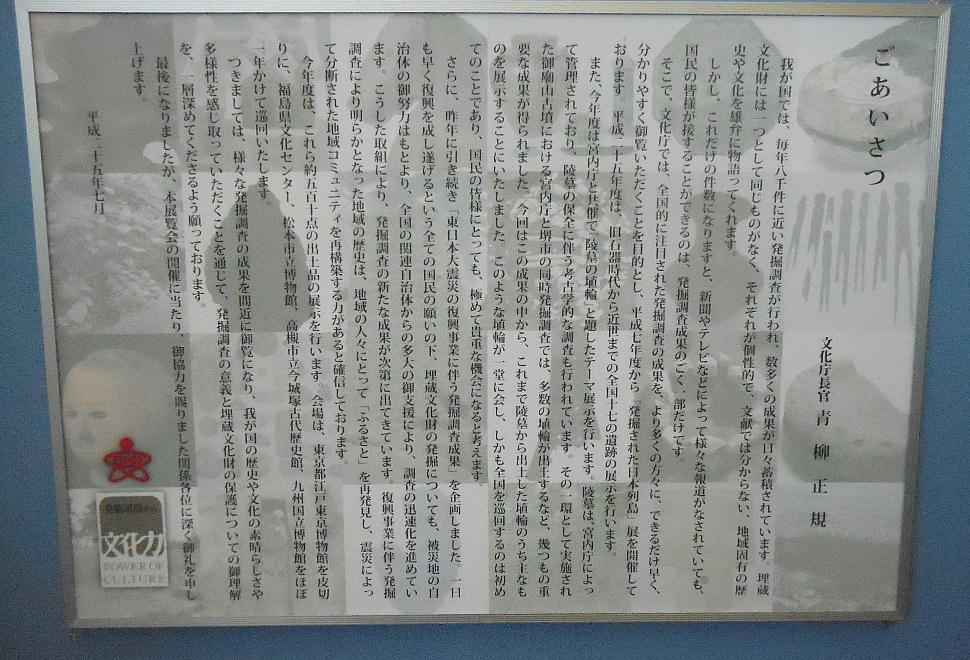 ごあいさつ
文化庁長官 青柳正規
我が国では、毎年八千件に近い発掘調査が行われ、数多くの成果が日々蓄積されています。埋蔵
文化財には一つとして同じものがなく、それぞれが個性的で、文献では分からない、地域固有の歴
史や文化を雄弁に物語ってくれます。
しかし、これだけの件数になりますと、新聞やテレビなどによって様々な報道がなされていても、
国民の皆様が接することができるのは、発掘調査成果のごく一部だけです。
そこで、文化庁では、全国的に注目された発掘調査の成果を、より多くの方々に、できるだけ早く、
分かりやすく御覧いただくことを目的とし、平成七年度から「発掘された日本列島」展を開催して
おります。平成二十五年度は、旧石器時代から近世までの全国十七の遺跡の展示を行います。
また、今年度は宮内庁と共催で「陵墓の埴輪」と題したテーマ展示を行います。陵墓は、宮内庁によっ
て管理されており、陵墓の保全に伴う考古学的な調査も行われています。その一環として実施され
た御廟山古墳における宮内庁と堺市の同時発掘調査では、多数の埴輪が出土するなど、幾つもの重
要な成果が得られました。今回はこの成果の中から、これまで陵墓から出土した埴輪のうち主なも
のを展示することにいたしました。このような埴輪が一堂に会し、しかも全国を巡回するのは初め
てのことであり、国民の皆様にとっても、極めて貴重な機会になると考えます。
さらに、昨年に引き続き「東日本大震災の復興事業に伴う発掘調査成果」を企画しました。一日
も早く復興を成し遂げるという全ての国民の願いの下、埋蔵文化財の発掘についても、被災地の自
治体の御努力はもとより、全国の関連自治体からの多大の御支援により、調査の迅速化を進めてい
ます。こうした取組により、発掘調査の新たな成果が次第に出てきています。復興事業に伴う発掘
調査により明らかとなった地域の歴史は、地域の人々にとって「ふるさと」を再発見し、震災によっ
て分断された地域コミュニティを再構築する力があると確信しております。
今年度は、これら約五百十点の出土品の展示を行います。会場は、東京都江戸東京博物館を皮切
りに、福島県文化センター、松本市立博物館、高槻市立今城塚古代歴史館、九州国立博物館をほぼ
一年かけて巡回いたします。
つきましては、様々な発掘調査の成果を間近に御覧になり、我が国の歴史や文化の素晴らしさや
多様性を感じ取っていただくことを通じて、発掘調査の意義と埋蔵文化財の保護についての御理解
を、一層深めてくださるよう願っております。
最後になりましたが、本展覧会の開催に当たり、御協力を賜りました関係各位に深く御礼を申し
上げます。
平成二十五年七月
文化力
POWER OF
CULTURE